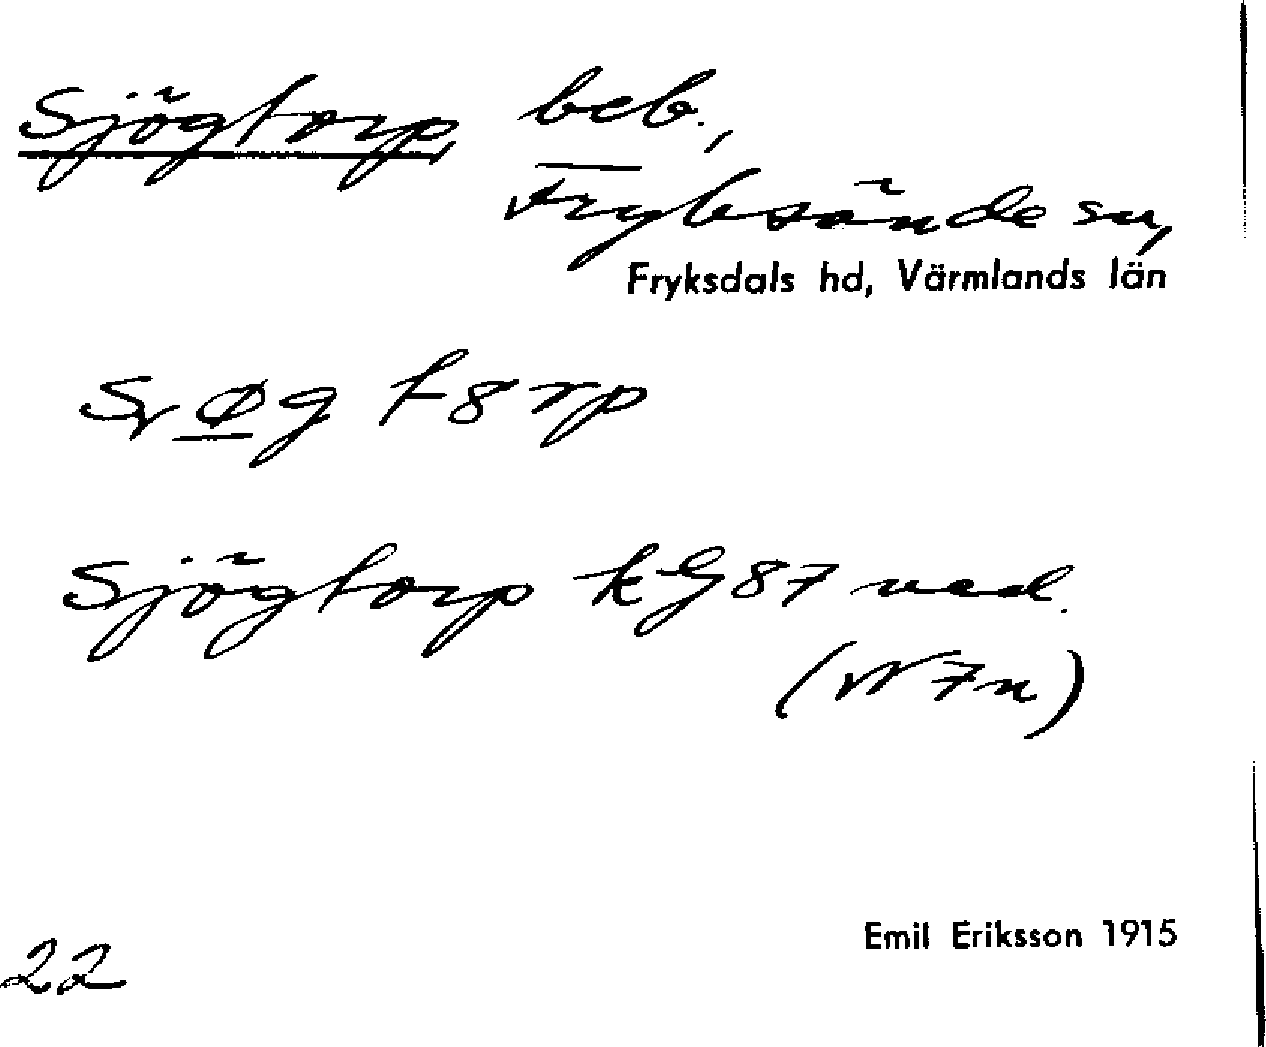 Sjögtorp, beb.,
Fryksände sn,
Fryksdals hd, Värmlands län
Sjögtorp kG87 ned.
(W7n)
Emil Eriksson 1915
22